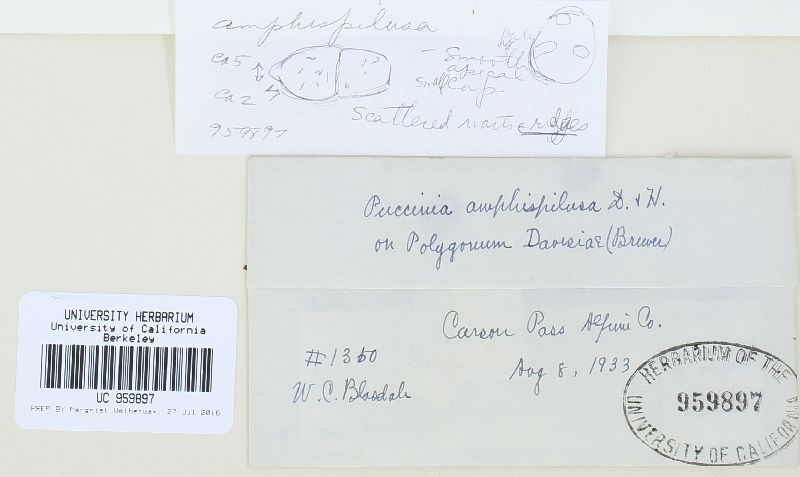 amphispilusa
ca 5
ca 2
959897
- Smooth
apical
small cap
Scattered warts & ridges
Puccinia amphispilusa D. & H.
on Polygonum Davisiae (Brewer)
Carson Pass Alpine Co.
Aug 8, 1933
#1360
W. C. Blasdale
UNIVERSITY HERBARIUM
University of California
Berkeley
UC 959897
PREP BY Margriet Wetherwax, 27 Jul 2016
HERBARIUM OF THE
959897
UNIVERSITY OF CALIFORNIA